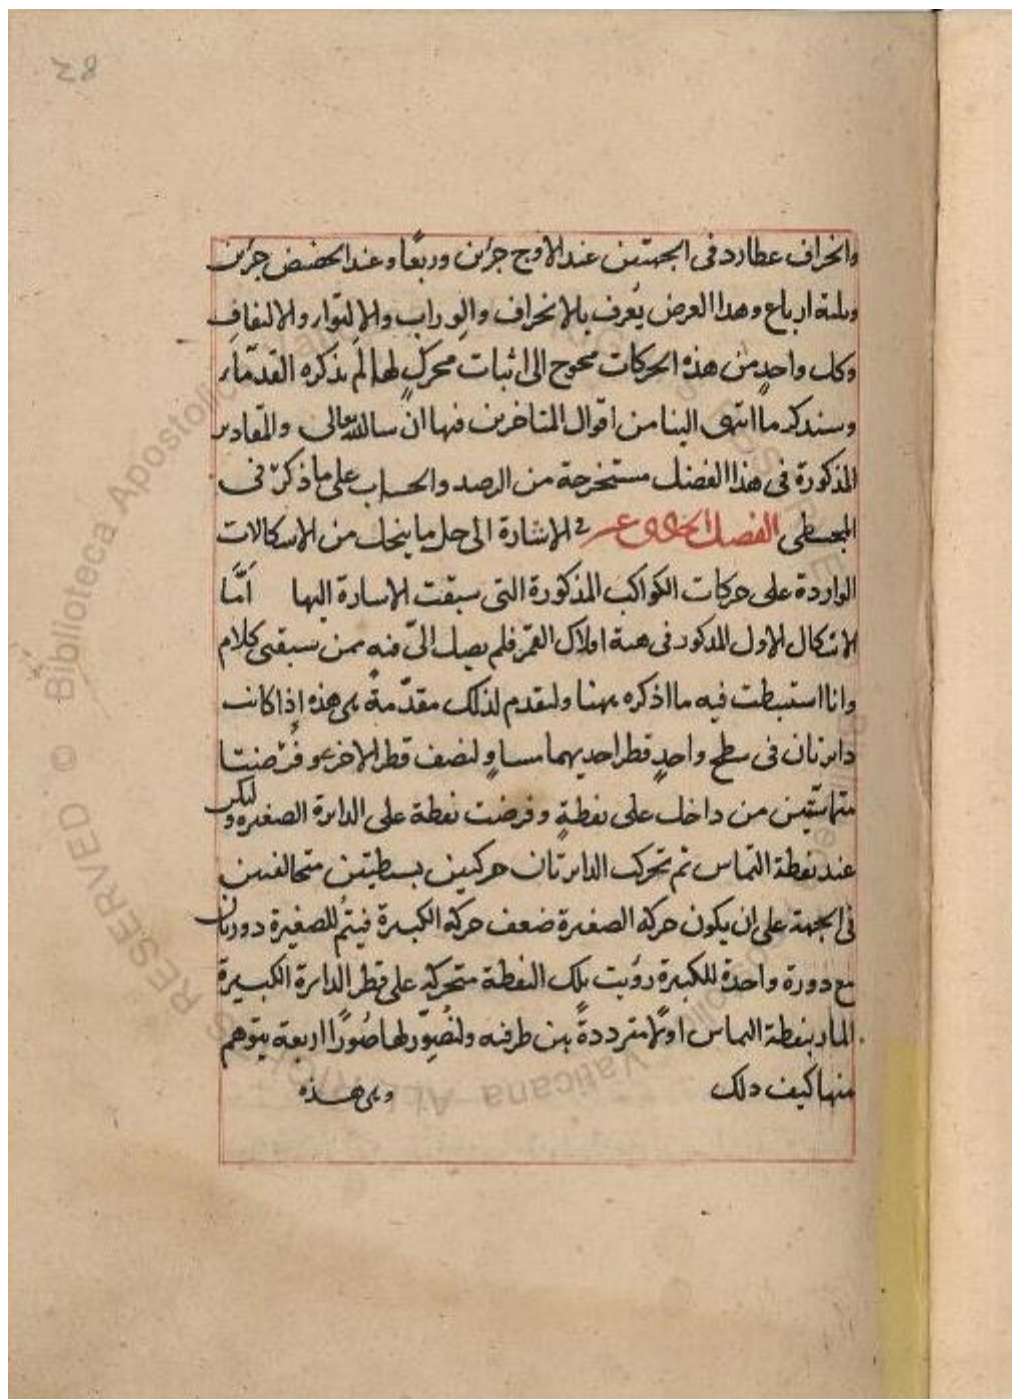 28
وانحراف عطارد فى الجهتين عند الاوج جزئين وربعًا وعند الحضيض جزئين
وثلثة ارباع وهذا العرض يُعرف بالانحراف والوِراب والالتواء والالتفافِ
وكل واحدٍ من هذه الحركات محوج الى اثبات محركٍ لها لم يذكره القدمّاء
وسنذكر ما انتهى الينا من اقوال المتاخرين فيها ان شا الله تعالى والمقادير
المذكورة فى هذا الفصل مستخرجة من الرصد والحساب على ما ذكر فى
المجسطى الفصل الحادى عشر فى الاشارة الى حل ما ينحل من الاشكالات
الواردة على حركات الكواكب المذكورة التى سبقت الاشارة اليها امّا
الاشكال الاول المذكور فى هيئة افلاك القمر فلم يصل الىّ فيه ممن سبقنى كلام
وانا استنبطت فيه ما اذكره ههنا ولنقدم لذلك مقدّمةً وهى هذه إذا كانت
دائرتان فى سطحٍ واحدٍ قطر احديهما مساوٍ لنصف قطر الاخرى وفُرضتا
متماسّتين من داخل على نقطةٍ وفرضت نقطة على الدائرة الصغيره ولتكن
عند نقطة التماس ثم تحركت الدائرتان حركتين بسيطتين متخالفتين
فى الجهة على ان يكون حركة الصغيرة ضعف حركة الكبيرة فيتمُ للصغيرة دورتان
مع دورة واحدة للكبيرة رؤيت تلك النقطة متحركة على قطر الدائرة الكبيرة
المار بنقطة التماس اولًا مترددةً بين طرفيه ولنُصوّر لها صُورًا اربعة يتوهم
منها كيف ذلك وهى هذه
RESERVED © Biblioteca Apostolica
Vaticana ALL